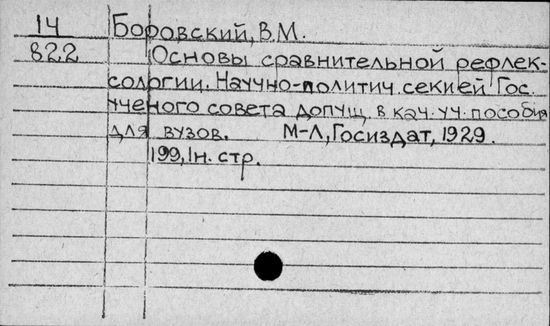 14 Боровский, В.М.
822 Основы сравнительной рефлек-
сологии. Научно-политич. секией Гос.
ученого совета допущ. в кач. уч. пособия
для вузов. М-Л, Госиздат, 1929.
199, 1н. стр.